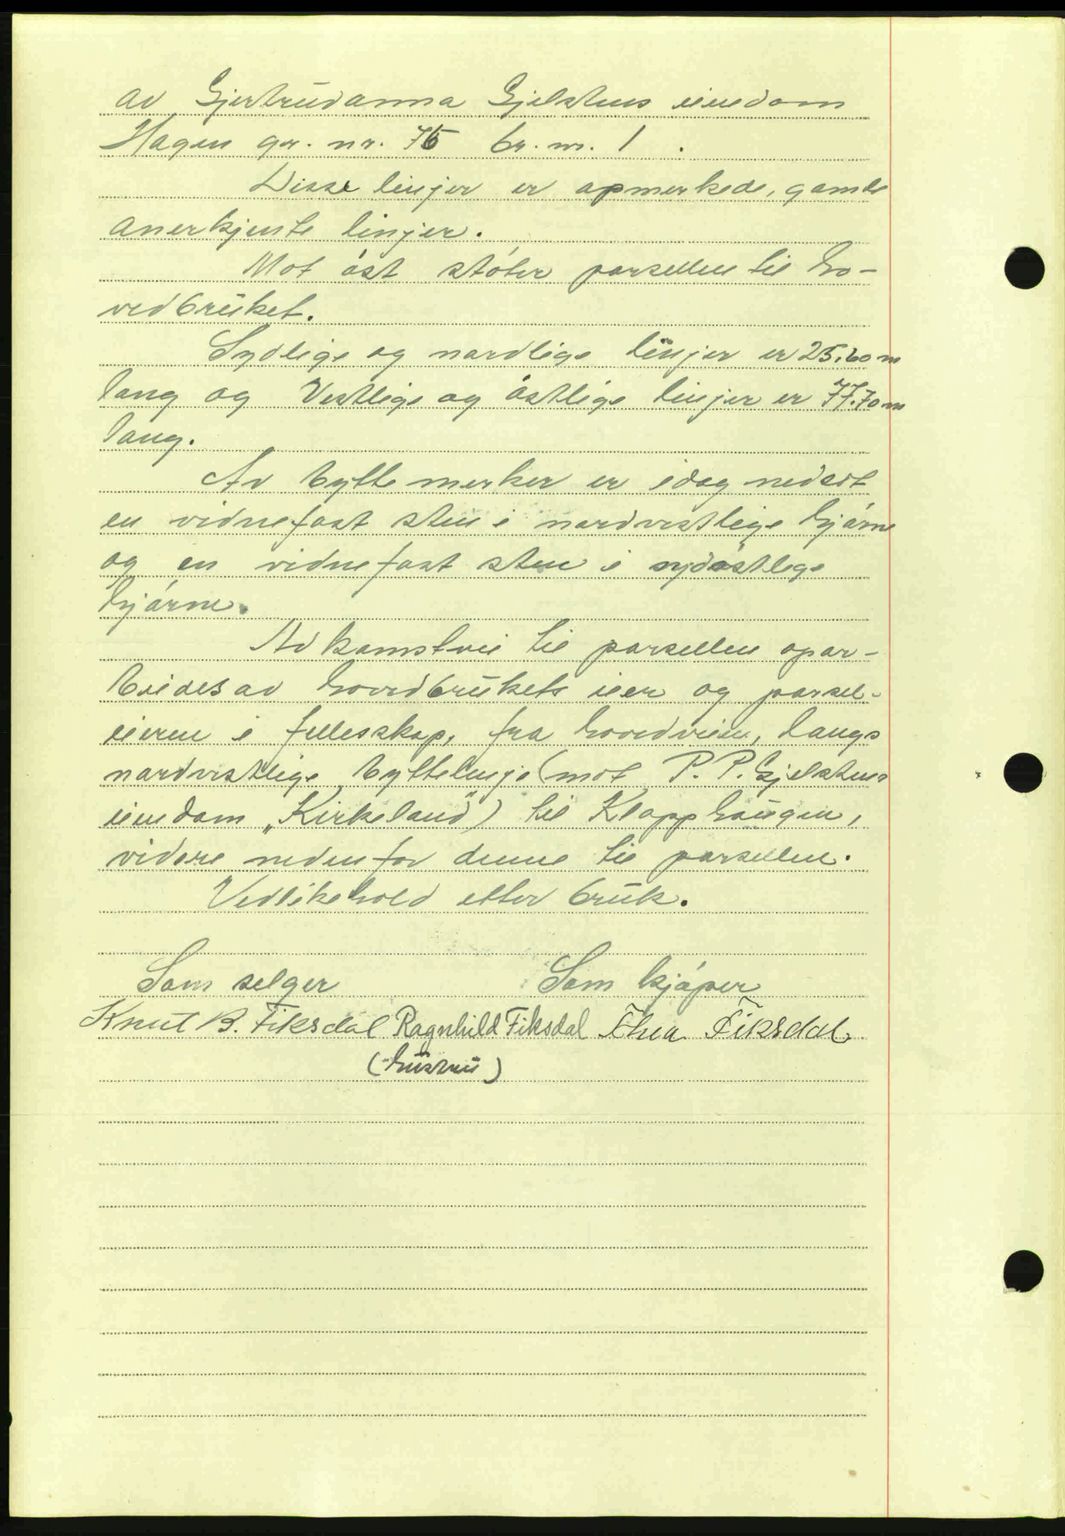 av Gjertrudanna Gjelstens eiendom
Hagen gr. nr. 75 br. nr. 1.
Disse linjer er opmerkede, gamle
anerkjente linjer.
Mot øst støter parsellen til ho-
vedbruket.
Sydlige og nordlige linjer er 25.60 m
lang og Vestlige og østlige linjer er 77.70 m
lang.
Av byttemerker er idag nedsat
en vidnefast sten i nordvestlige hjørne
og en vidnefast sten i sydøstlige
hjørne.
Adkomstvei til parsellen opar-
beides av hovedbrukets eier og parsel-
eieren i fellesskap, fra hovedveien, langs
nordvestlige byttelinje (mot P. P. Gjelstens
eiendom „Kirkeland") til Klopphaugen,
videre nedenfor denne til parsellen.
Vedlikehold etter bruk.
Som selger Som kjøper
Knut B. Fiksdal Ragnhild Fiksdal Thea Fiksdal
(hustru)